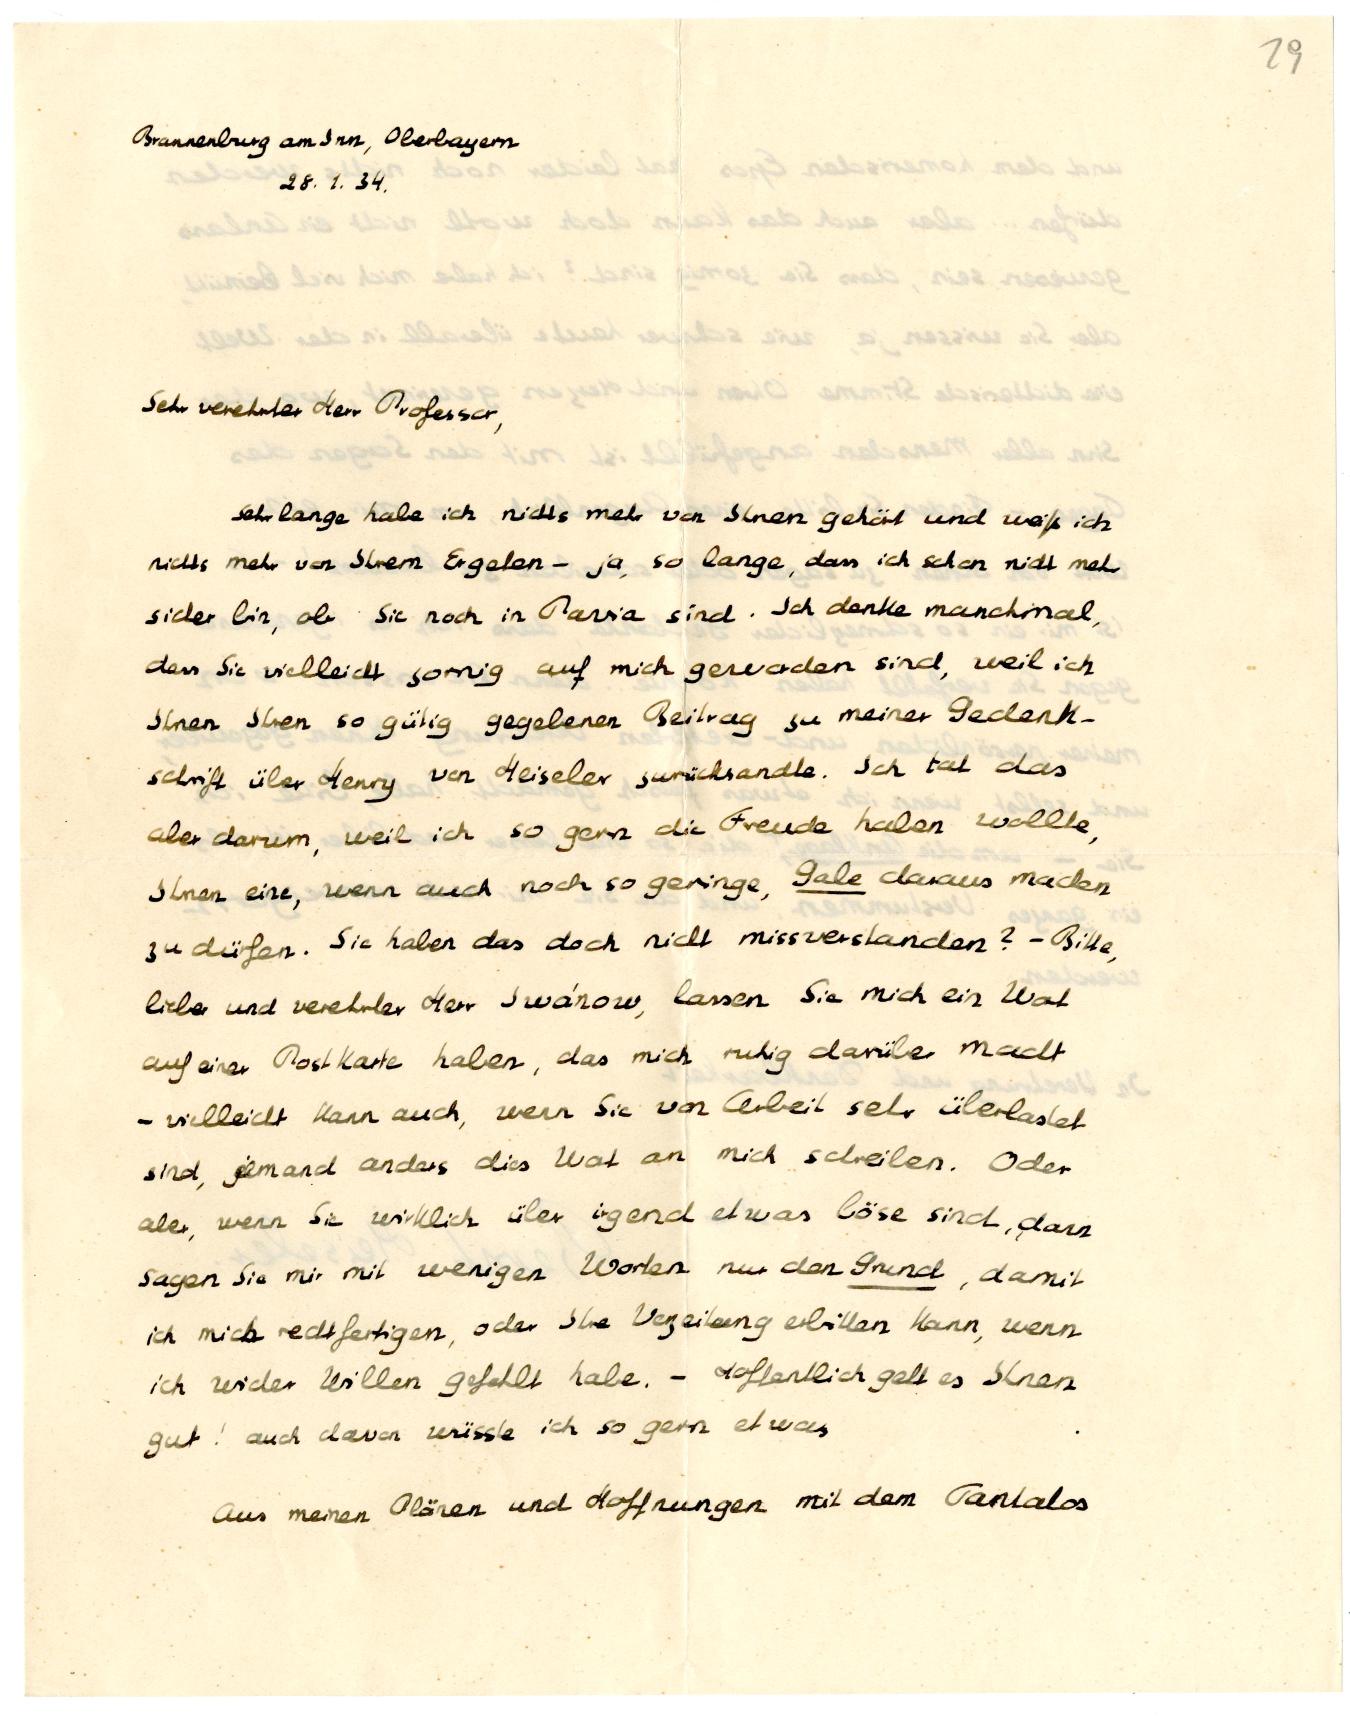 29
Brannenburg am Inn, Oberbayern
28. 1. 34.
Sehr verehrter Herr Professor,
sehr lange habe ich nichts mehr von Ihnen gehört und weiß ich
nichts mehr von Ihrem Ergehen – ja, so lange, dass ich schon nicht mehr
sicher bin, ob Sie noch in Pavia sind. Ich denke manchmal,
dass Sie vielleicht zornig auf mich geworden sind, weil ich
Ihnen Ihren so gütig gegebenen Beitrag zu meiner Gedenk-
schrift über Henry von Heiseler zurücksandte. Ich tat das
aber darum, weil ich so gern die Freude haben wollte,
Ihnen eine, wenn auch noch so geringe, Gabe daraus machen
zu dürfen. Sie haben das doch nicht missverstanden? – Bitte,
lieber und verehrter Herr Iwánow, lassen Sie mich ein Wort
auf einer Postkarte haben, das mich ruhig darüber macht
– vielleicht kann auch, wenn Sie von Arbeit sehr überlastet
sind, jemand anders dies Wort an mich schreiben. Oder
aber, wenn Sie wirklich über irgend etwas böse sind, dann
sagen Sie mir mit wenigen Worten nur den Grund, damit
ich mich rechtfertigen, oder Ihre Verzeihung erbitten kann, wenn
ich wider Willen gefehlt habe. – Hoffentlich geht es Ihnen
gut! auch davon wüsste ich so gern etwas
Aus meinen Plänen und Hoffnungen mit dem Tantalos